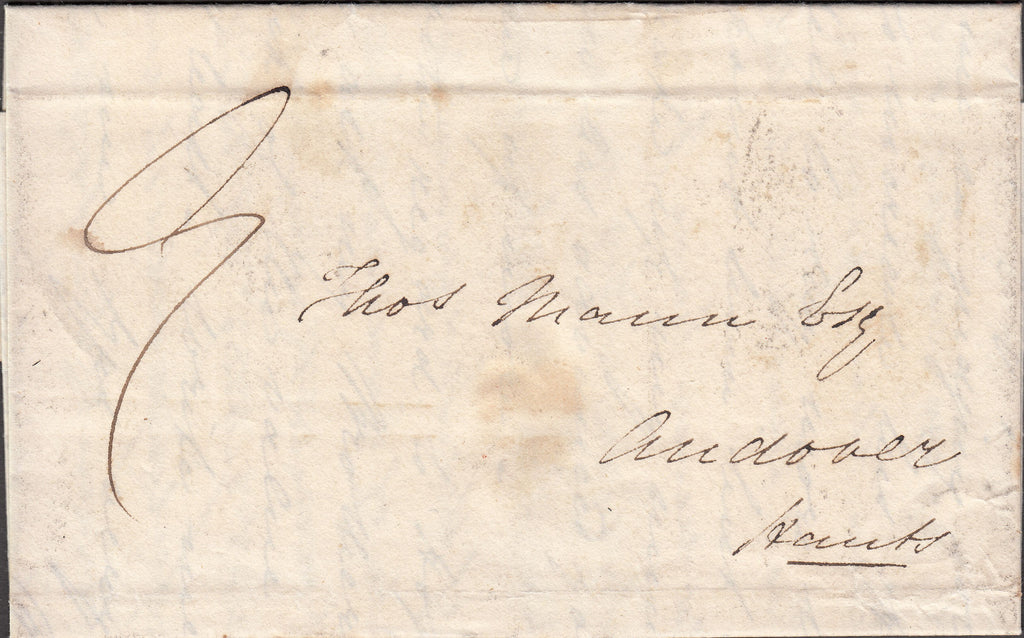 Thos Mann Esq
Andover
Hants